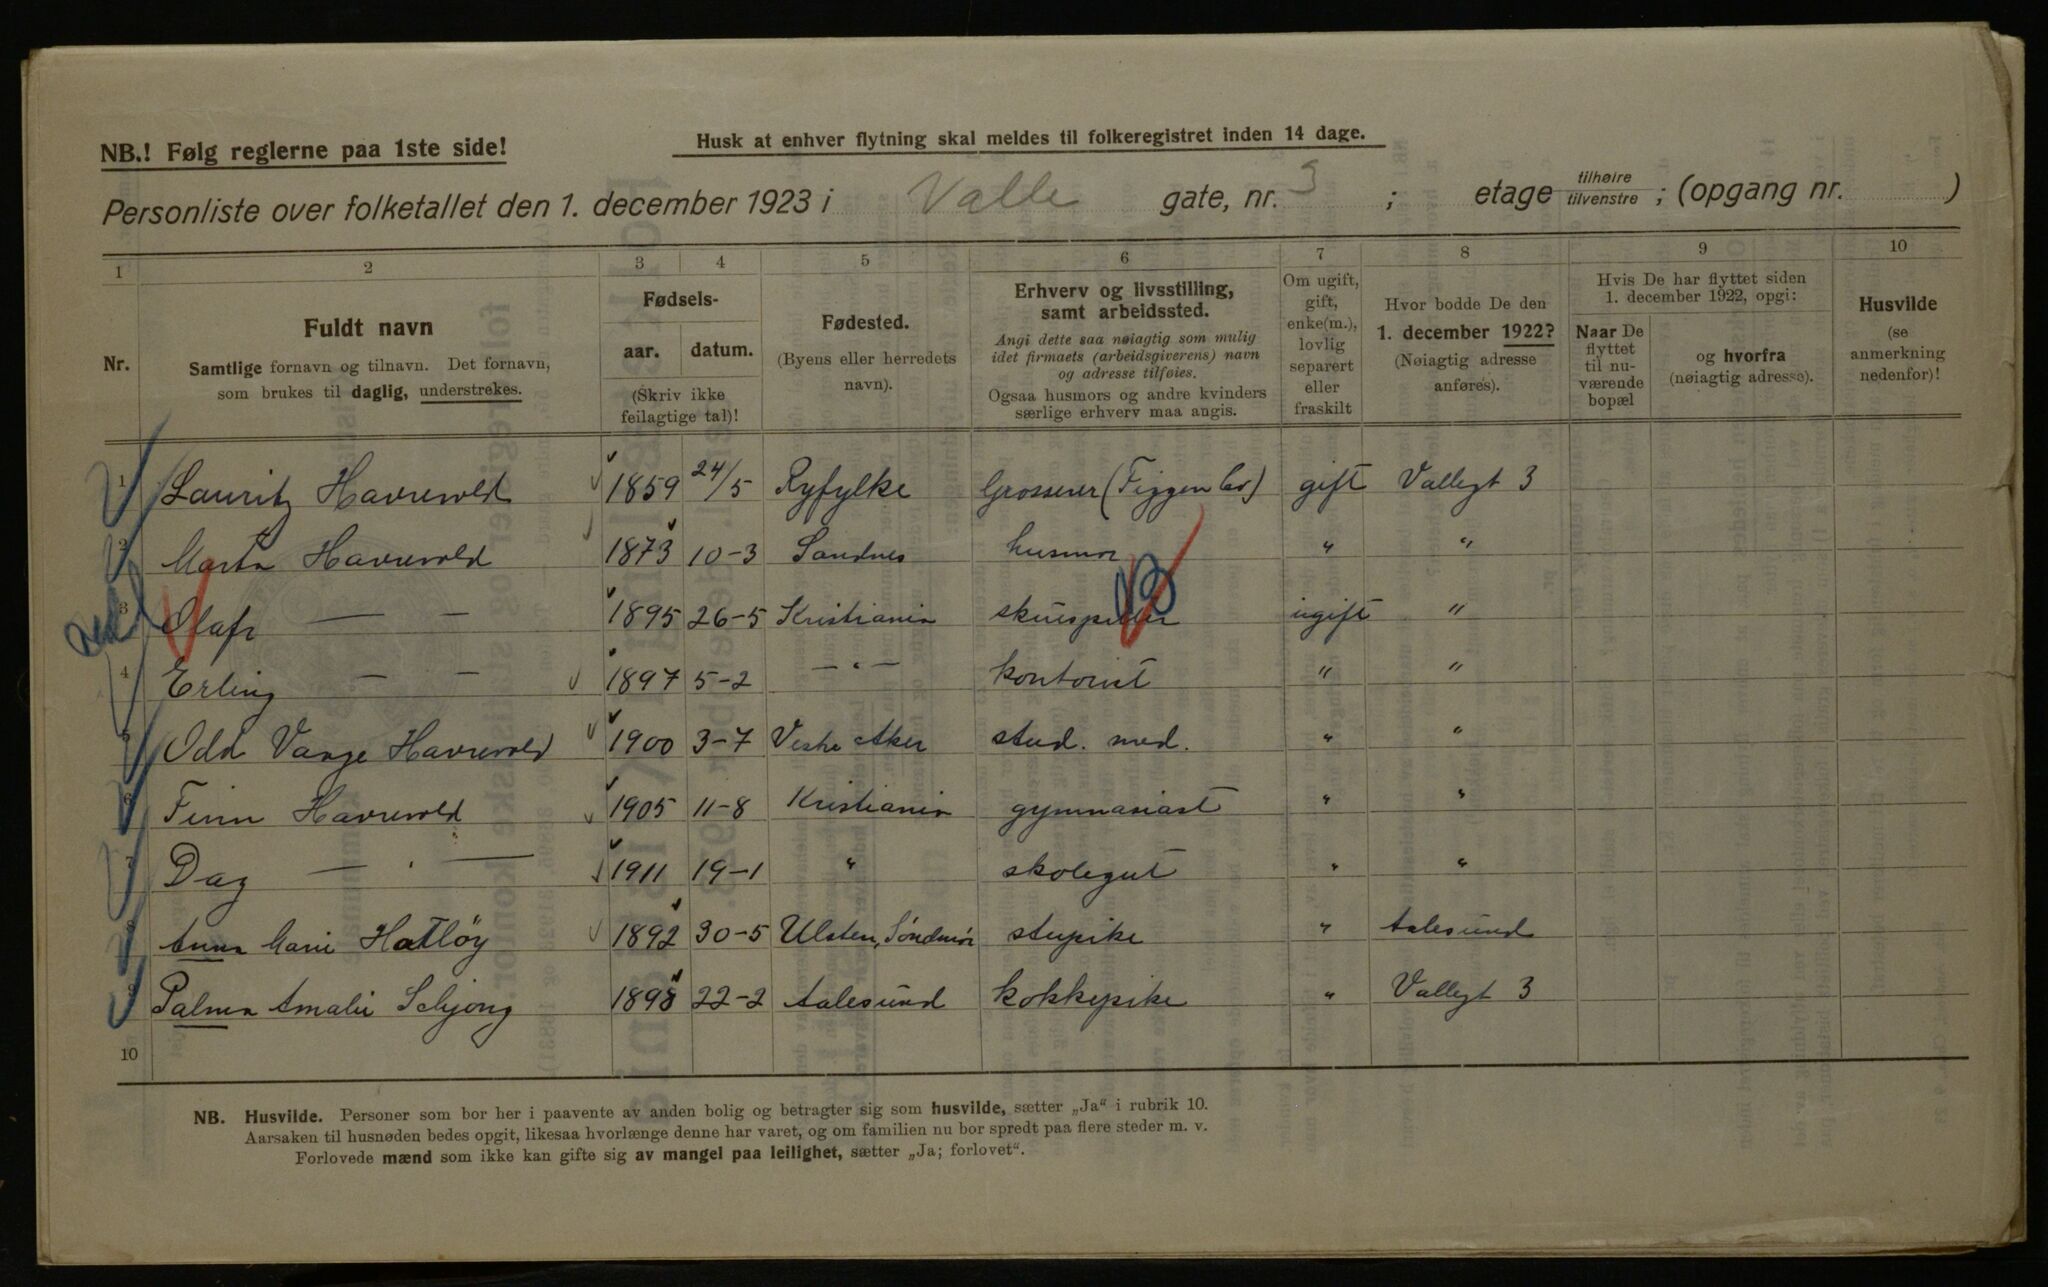 NB.! Følg reglerne paa 1ste side!
Husk at enhver flytning skal meldes til folkeregistret inden 14 dage.
Personliste over folketallet den 1. december 1923 i Valle gate, nr. 3 ; etage tilhøire tilvenstre ; (opgang nr. )
1 2 3 4 5 6 7 8 9 10
Nr.
Fuldt navn
Samtlige fornavn og tilnavn. Det fornavn,
som brukes til daglig, understrekes.
Fødsels-
aar. datum.
(Skriv ikke
feilagtige tal)!
Fødested.
(Byens eller herredets
navn).
Erhverv og livsstilling,
samt arbeidssted.
Angi dette saa nøiagtig som mulig
idet firmaets (arbeidsgiverens) navn
og adresse tilføies.
Ogsaa husmors og andre kvinders
særlige erhverv maa angis.
Om ugift,
gift,
enke(m.),
lovlig
separert
eller
fraskilt
Hvor bodde De den
1. december 1922?
(Nøiagtig adresse
anføres).
Hvis De har flyttet siden
1. december 1922, opgi:
Naar De
flyttet
til nu-
værende
bopæl
og hvorfra
(nøiagtig adresse).
Husvilde
(se
anmerkning
nedenfor)!
1 Lauritz Havrevold 1859 24/5 Ryfylke Grosserer (Figgen Co) gift Vallegt 3
2 Marta Havrevold 1873 10-3 Sandnes husmor " "
3 Olafr — — 1895 26-5 Kristiania skuespiller ugift "
4 Erling — — 1897 5-2 — " — kontorist " "
5 Odd Vange Havrevold 1900 3-7 Vestre Aker stud. med. " "
6 Finn Havrevold 1905 11-8 Kristiania gymnasiast " "
7 Dag — " — 1911 19-1 " skolegut " "
8 Anna Marie Hatløy 1892 30-5 Ulsten, Søndmør stupike " Aalesund
9 Palma Amalie Schjong 1898 22-2 Aalesund kokkepike " Vallegt 3
10
NB. Husvilde. Personer som bor her i paavente av anden bolig og betragter sig som husvilde, sætter „Ja“ i rubrik 10.
Aarsaken til husnøden bedes opgit, likesaa hvorlænge denne har varet, og om familien nu bor spredt paa flere steder m. v.
Forlovede mænd som ikke kan gifte sig av mangel paa leilighet, sætter „Ja; forlovet“.